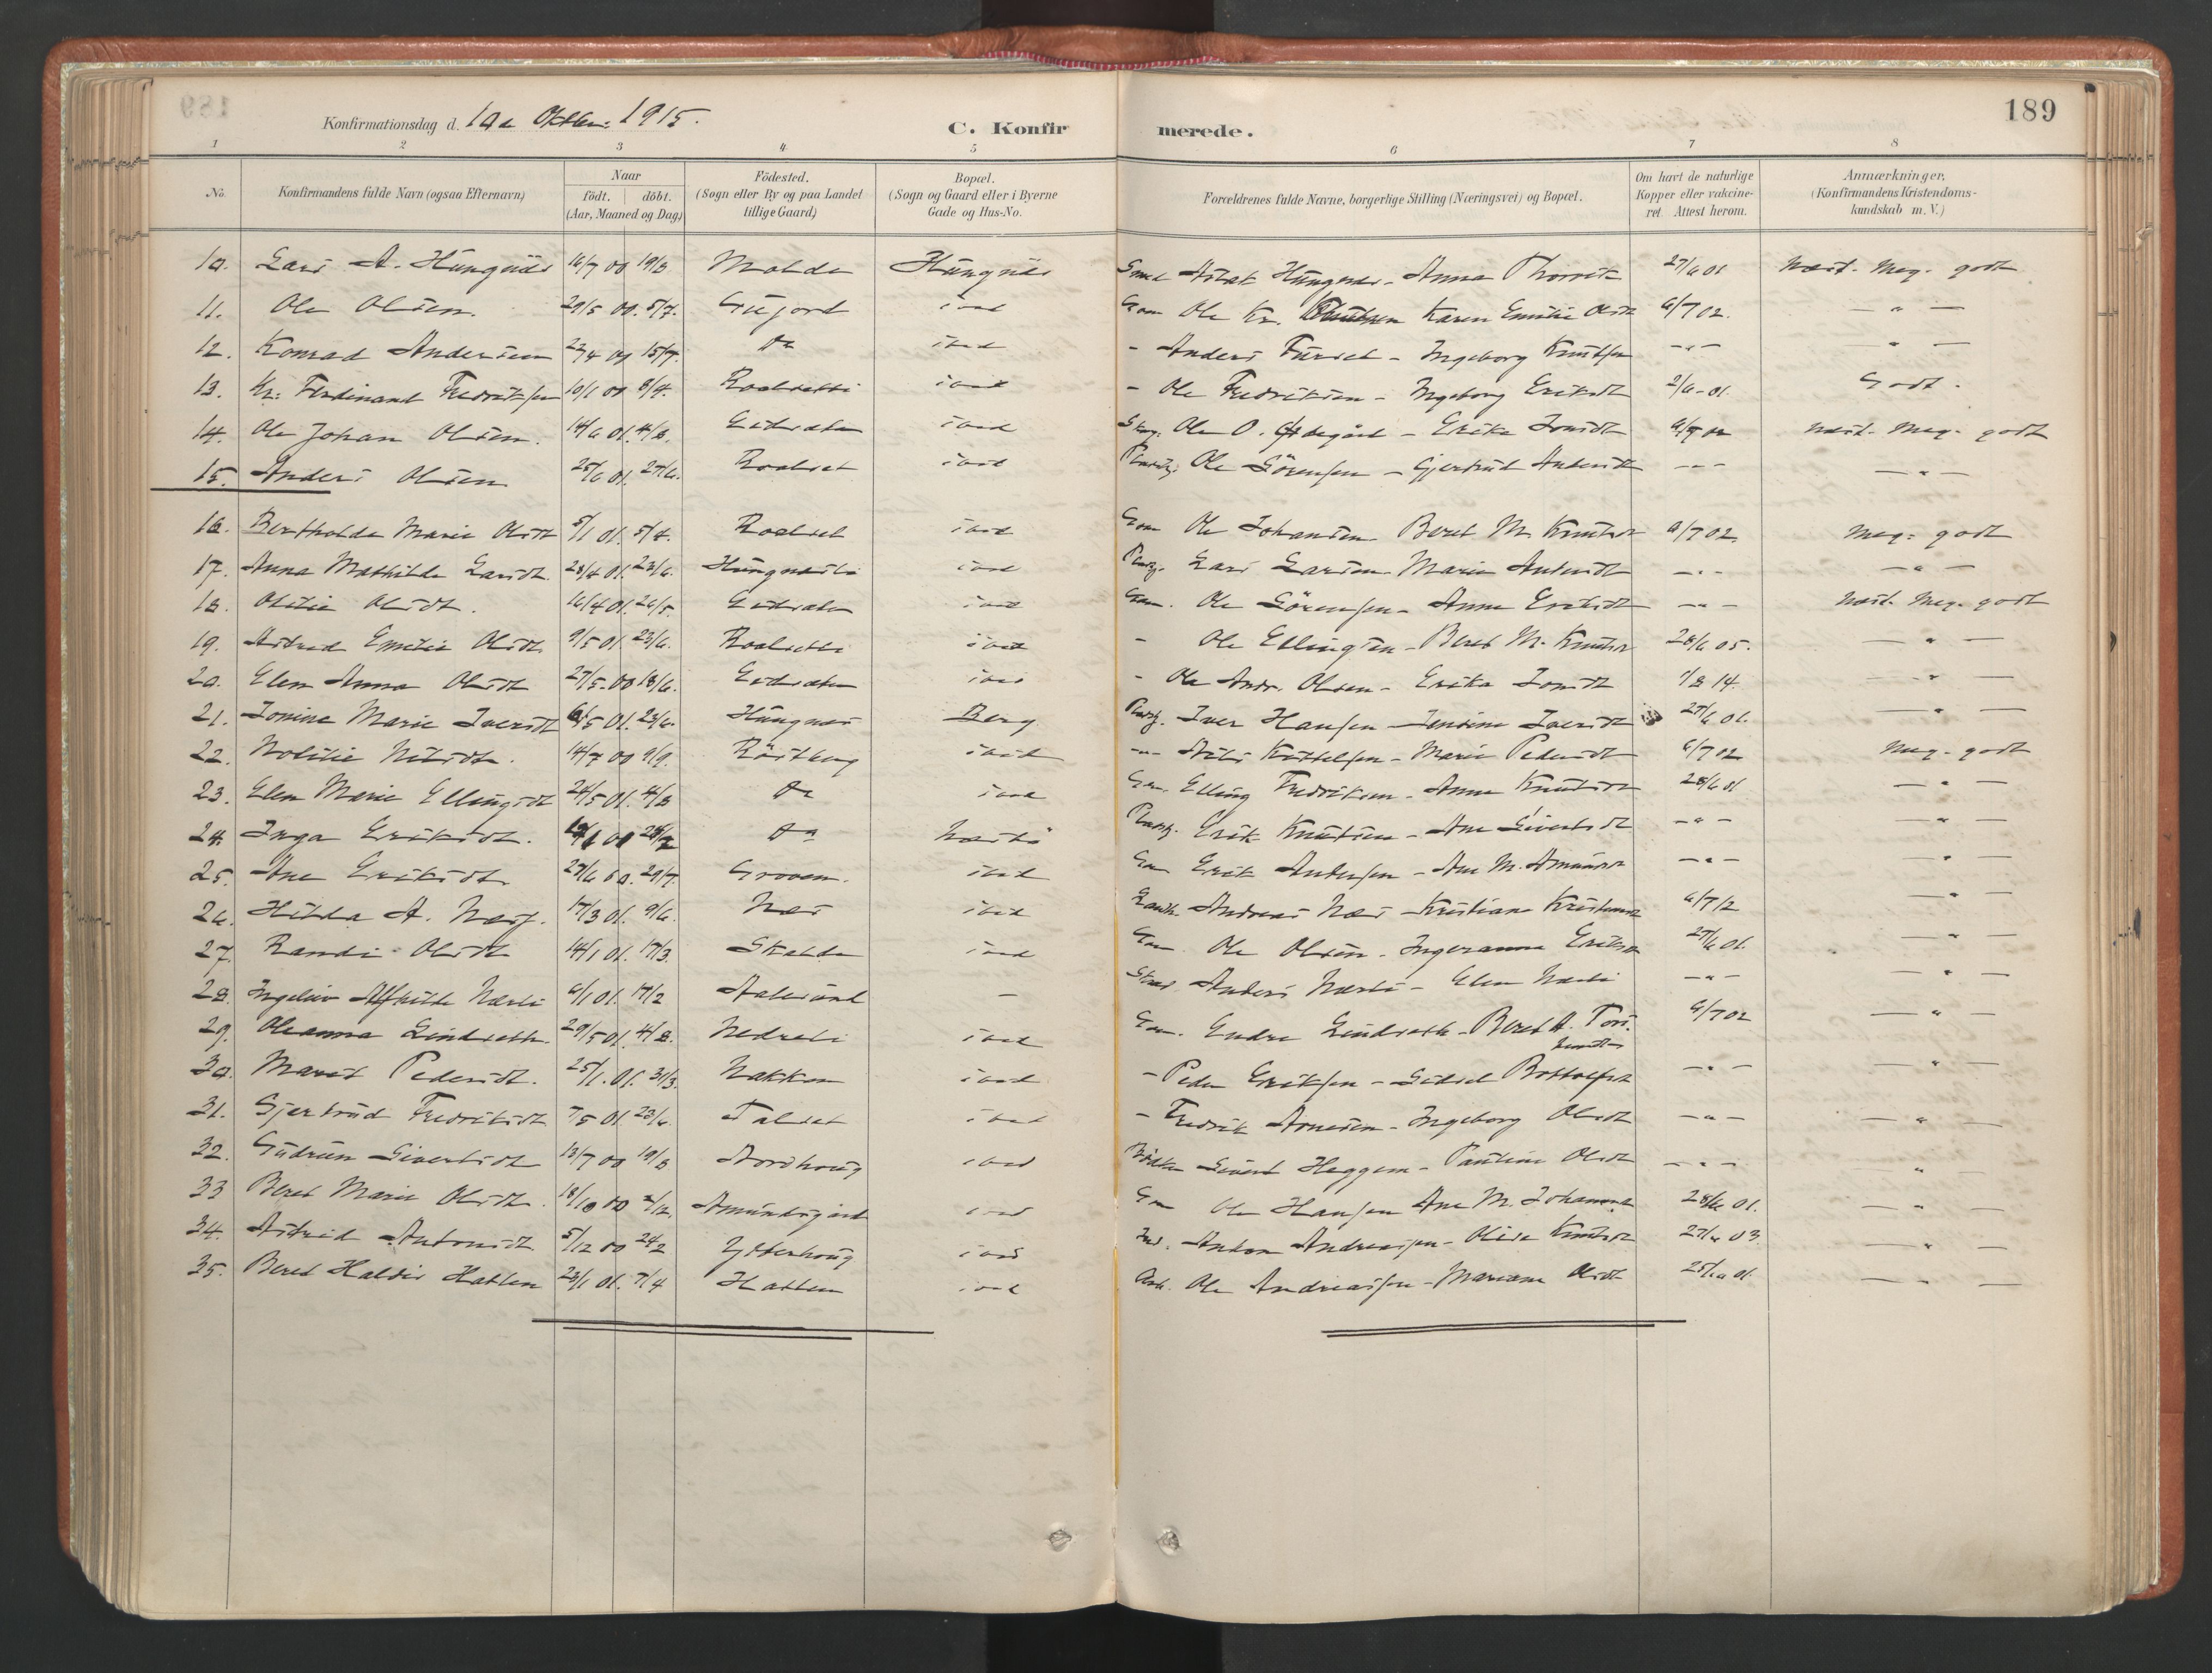 189
Konfirmationsdag d. 10de Oktbr. 1915.
C. Konfirmerede.
1 2 3 4 5 6 7 8
No. Konfirmandens fulde Navn (ogsaa Efternavn) Naar født. døbt. (Aar, Maaned og Dag) Fødested. (Sogn eller By og paa Landet tillige Gaard) Bopæl. (Sogn og Gaard eller i Byerne Gade og Hus-No. Forældrenes fulde Navne, borgerlige Stilling (Næringsvei) og Bopæl. Om havt de naturlige Kopper eller vakcineret. Attest herom. Anmærkninger, (Konfirmandens Kristendomskundskab m. V.)
10. Lars A. Hungnes 16/7 00 19/8 Molde Hungnes Aslak Hungnes - Anna 27/6 01 Næst. Meg. godt
11. Ole Olsen. 29/5 00. 5/7. ibid Gom Ole Kr. Karen Emilie Olsdt 6/7 02. — " —
12. Konrad Andersen 15/7. do ibid - Anders Furset - Ingeborg Knutsen - " - — " —
13. Kr. Ferdinand Fredriksen 10/1 00 8/4. Roalsetli ibid - Ole Fredriksen - Ingeborg Eriksdt 2/6 - 01. Godt.
14. Ole Johan Olsen. 14/6 01. 4/8. Eidsæter ibid Ole O. - Erika Jonsdt Næst. Meg. godt
15. Anders Olsen 25/6 01. 27/6. Roalset ibid Ole Sörensen - Gjertrud - " - — " —
16. Bertholde Marie Olsdt 5/1 01. 5/4. Roalset ibid Gom Ole Johansen Beret M. Knutsdt 6/7 02. Meg. godt
17. Anna Mathilde Larsdt. 28/4 01. 23/6. Hungnesli ibid Lars Larsen Marie - " - — " —
18. Otilie Olsdt. 16/4 01. 26/5. Eidsæter ibid Gom. Ole Sörensen - Anne Eriksdt - " - Næst. Meg. godt
19. Astrid Emilie Olsdt 9/5 01. 23/6. Roalsetli ibid - Ole Ellingsen - Beret M. Knutsdt 28/6 05. — " —
20. Elen Anna Olsdt 27/5 - 00 18/6. Eidsæter ibid - Ole Andr. Olsen - Erika Jonsdt 1/8 14. — " —
21. Jonine Marie Iversdt 01. 23/6. Hungnes Berg Iver Hansen - Jensine Iversdt 27/6 01. — " —
22. Nilsdt. 14/7 00 9/9. Röistberg ibid - " - Nils Kittelsen - Marie Pedersdt 6/7 02 Meg. godt
23. Elen Marie Ellingsdt 24/5 01. 4/8 do ibid Gom. Elling Fredriksen - Anne Knutsdt 28/6 01 — " —
24. Inga Eriksdt. do Erik Knutsen - Ane Sivertsdt - " - — " —
25. Ane Eriksdt 27/6 00. 29/7. Groven. ibid Gom Erik Andersen - Ane M. - " - — " —
26. Hilda A. Næs. 17/3 01. 9/6. Næs ibid Andreas Næs - Kristiane 6/7/2 — " —
27. Randi Olsdt 14/1 01. 17/3. Skalde ibid Gom. Ole Olsen - Ingeranna 27/6 01. — " —
28. Ingeleiv Alfhilde Nærli 6/1 01. 17/2 Aalesund — Anders Nærli - Elen Nærli - " - — " —
29. Oleanna Lindseth 29/5 01. 4/8. Nedreli ibid Gom. Endre Lindseth - Beret A. 6/7 02 — " —
30. Marit Pedersdt. 25/1. 01. 31/3. Nakken ibid - Peder Eriksen - Sidsel - " - — " —
31. Gjertrud Fredriksdt 7/5 01. 23/6. Talset ibid - Fredrik Arnesen - Ingeborg Olsdt - " - — " —
32. Gudrun Sivertsdt 13/7 00 19/8 Nordhoug ibid Sivert Heggem - Pauline Olsdt - " - — " —
33 Beret Marie Olsdt. 18/10 00 Amundsgård ibid Gom Ole Hansen Ane M. 28/6 01. — " —
34. Astrid Antonsdt 5/12 00 24/2 Ytterhoug ibid Anton Andreassen - Olise Knutsdt 03. — " —
35. Beret Haldis Hatlen 23/1 01. 7/4 Hatlen ibid Ole Andreassen - Mariane Olsdt 01. — " —